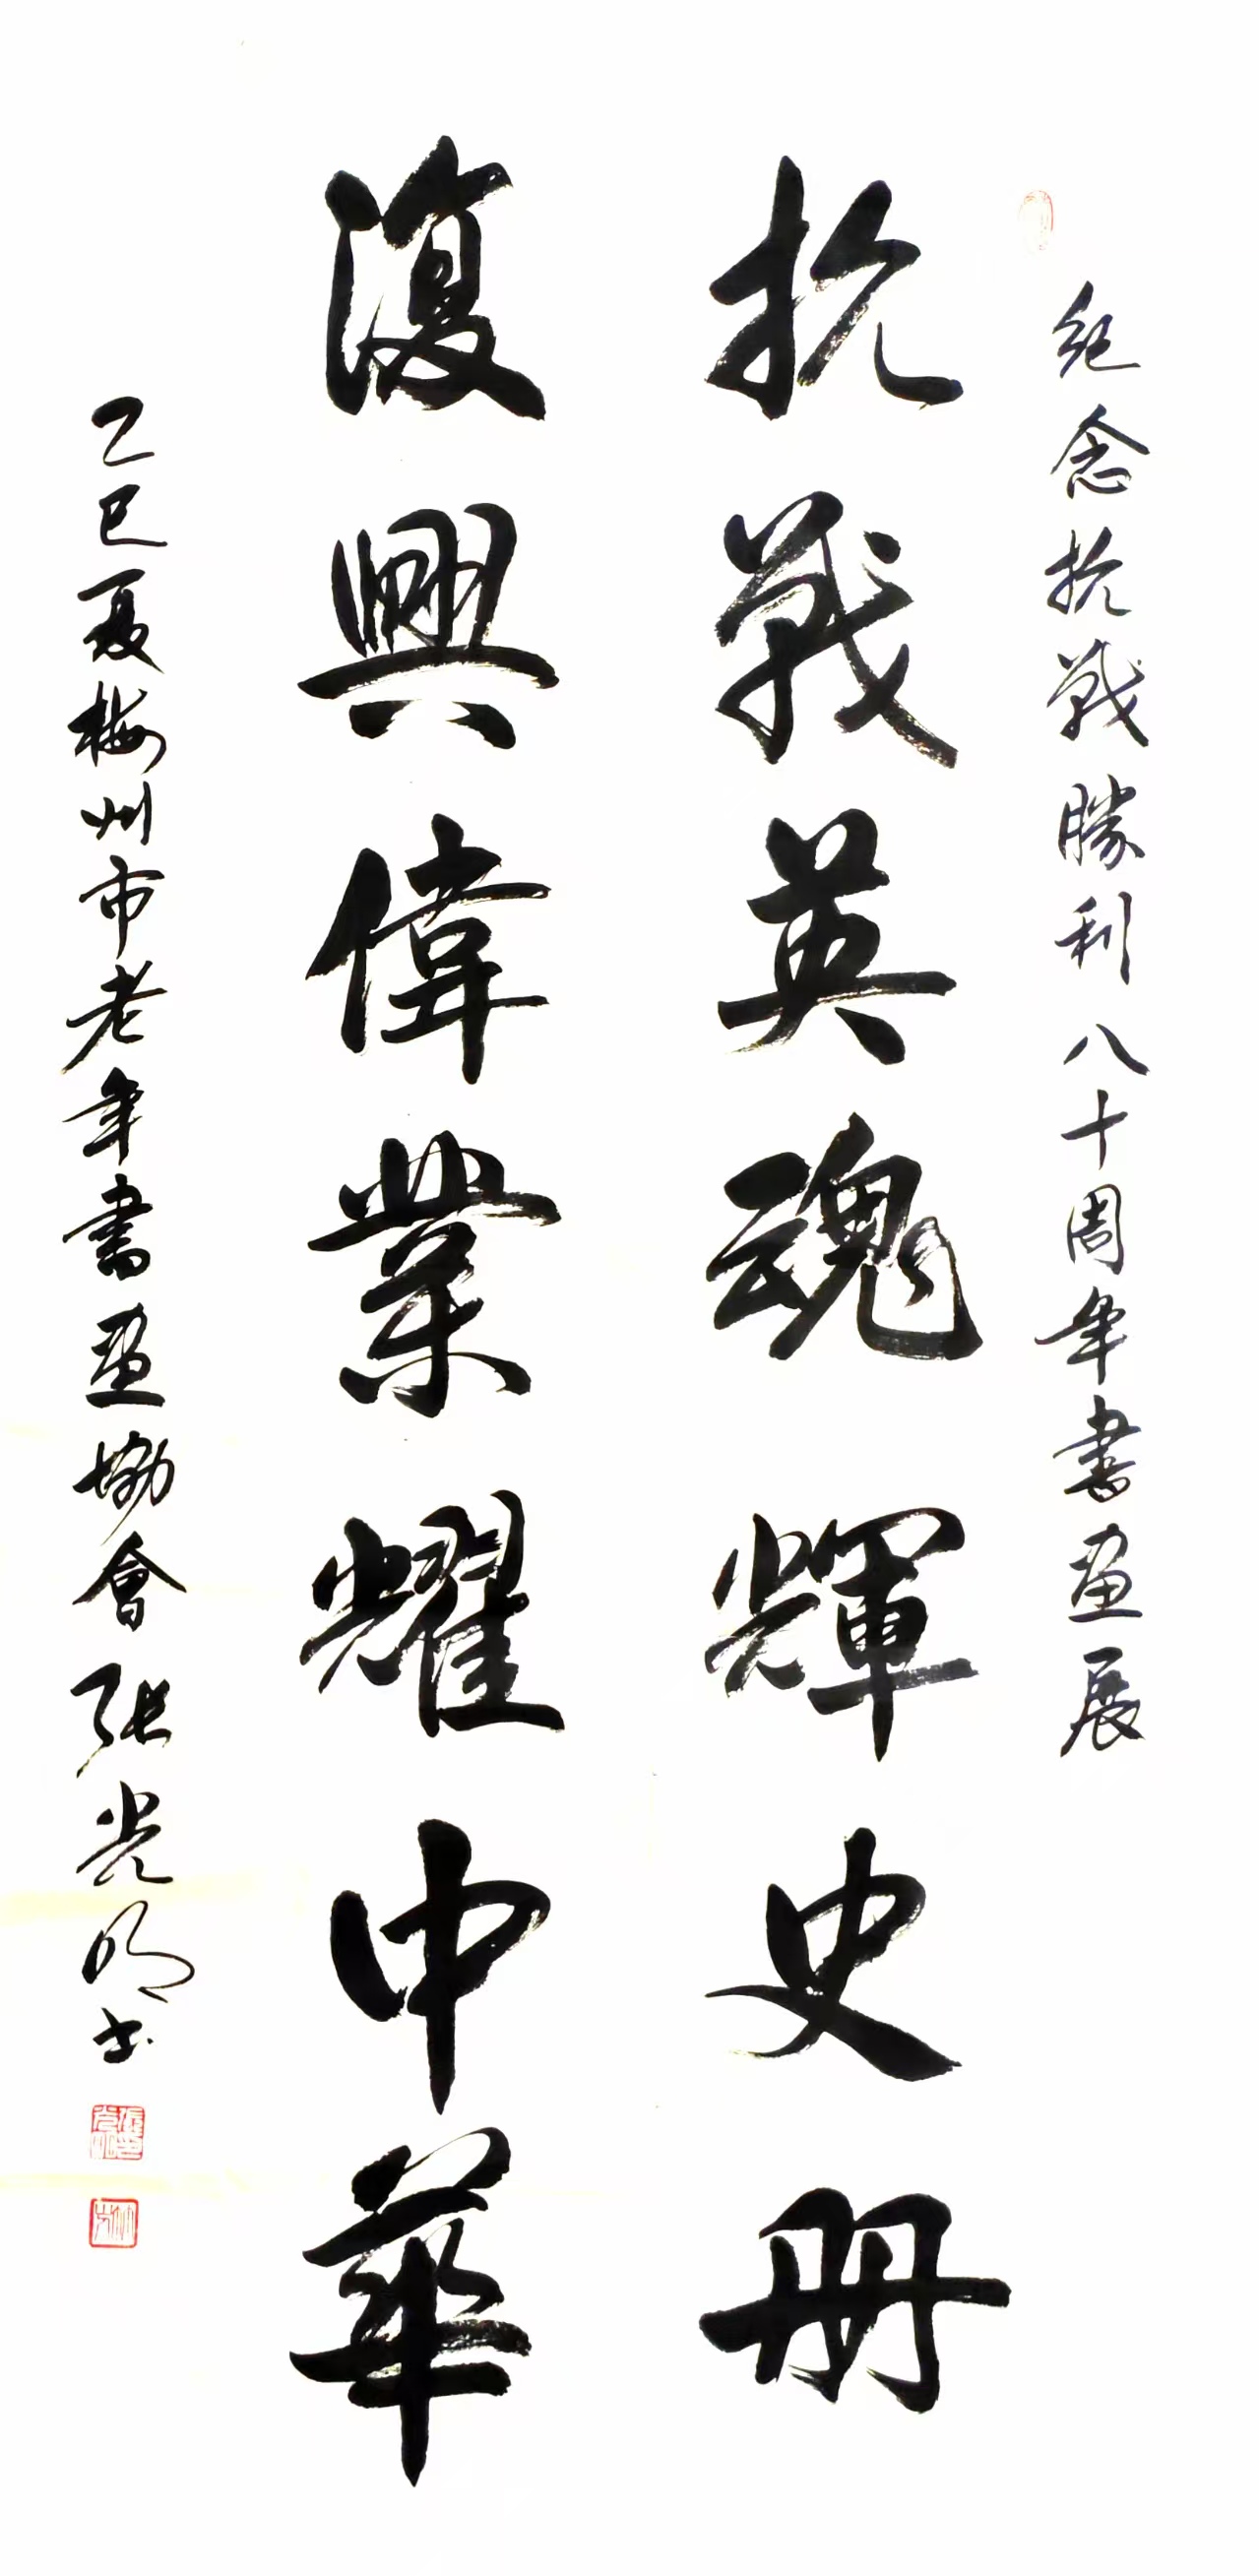 紀念抗戰勝利八十周年書畫展
抗戰英魂輝史册
復興偉業耀中華
乙巳夏梅州市老年書畫協會張光明書